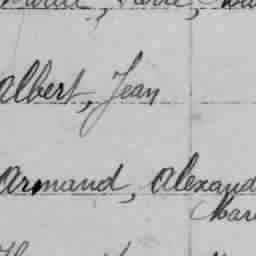 Albert, Jean
Armand, Alexand
Mari